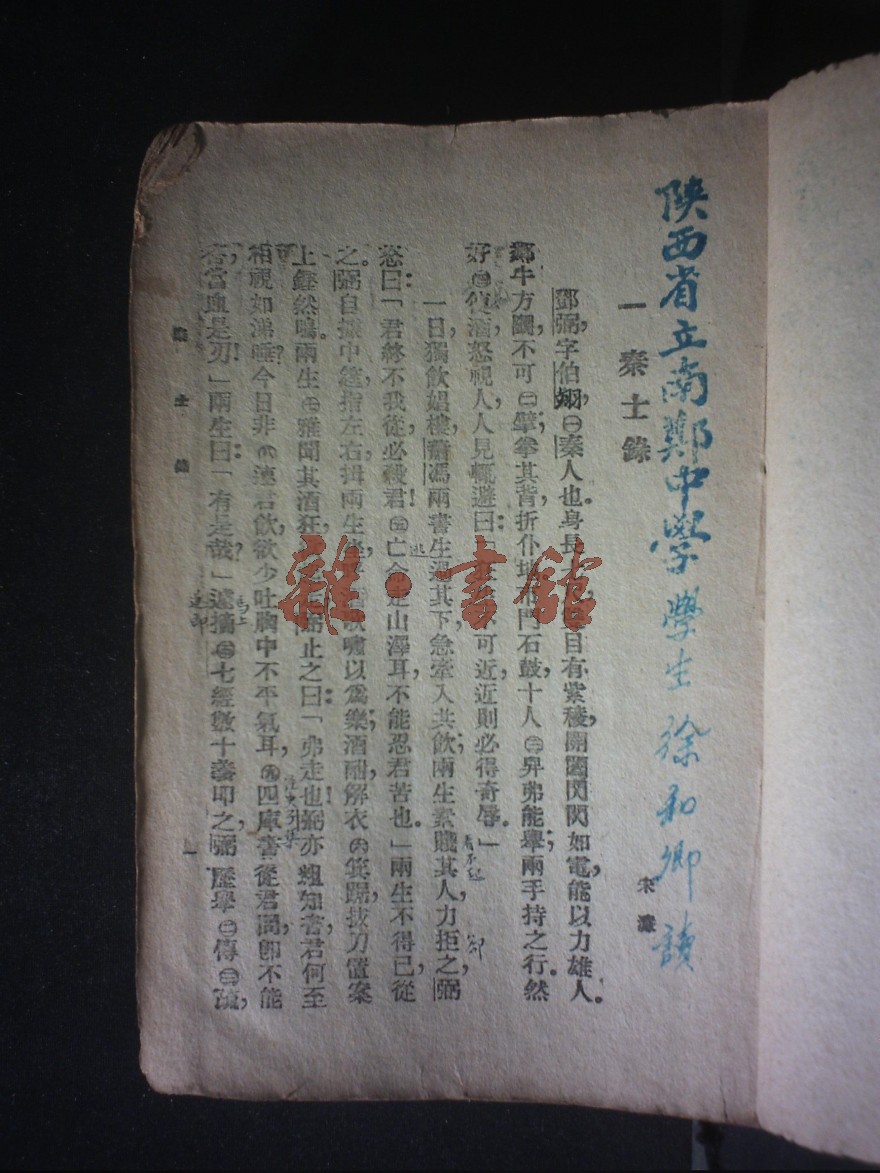 陝西省立南鄭中學學生徐和卿讀
一 秦士錄
宋濂
鄧弼,字伯翊,㊀秦人也。身長目有紫稜,開闔閃閃如電,能以力雄人。
鄰牛方鬬,不可㊁擘,拳其背,折仆地;市門石鼓,十人㊂舁,弗能舉;兩手持之行。然
好㊃使酒,怒視人,人見輒避,曰:「狂生不可近,近則必得奇辱。」
一日,獨飲娼樓,蕭馮兩書生過其下,急牽入共飲;兩生素賤其人,力拒之。弼
怒曰:「君終不我從,必殺君!㊄亡命走山澤耳,不能忍君苦也。」兩生不得已,從
之。弼自據中筵,指左右,揖兩生坐,歌嘯以爲樂;酒酣,解衣㊅箕踞,拔刀置案
上,鏗然鳴。兩生㊆雅聞其酒狂,弼止之曰:「弗走也!弼亦粗知書,君何至
相視如涕唾?今日非㊇速君飲,欲少吐胸中不平氣耳,㊈四庫書從君問,即不能
答,當血是刃!」兩生曰:「有是哉?」遽摘㊀七經數十義叩之,弼歷舉㊁傳㊂疏,
逃
馬上
秦士錄
一
雜·書館